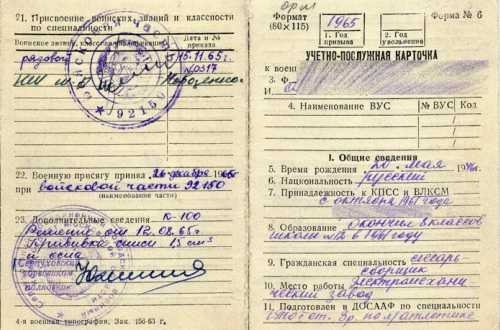 21. Присвоение воинских званий и классность
по специальности
Воинское звание, классная квалификация
Дата и №
приказа
рядовой
15.11.65г.
№0317
НШ
92150
22. Военную присягу принял 26 декабря 1965г
при войсковой части 92150
(наименование части)
23. Дополнительные сведения К-100
Решение от 12.08.65г
Прививка смеси 1,5 см³
и оспа
4-я военная типография, Зак. 156-63 г.
Формат
(80×115)
1965
1. Год
призыва
2. Год
увольнения
Форма № 6
УЧЕТНО-ПОСЛУЖНАЯ КАРТОЧКА
к воен
3. Ф
4. Наименование ВУС
№ ВУС
Код
I. Общие сведения
5. Время рождения 20 мая 1946г
6. Национальность русский
7. Принадлежность к КПСС и ВЛКСМ
с октября 1961 года
8. Образование окончил 8 классов
школы №12 в 1961 году
9. Гражданская специальность слесарь
сборщик
10. Место работы Электромехани
ческий завод
11. Подготовлен в ДОСААФ по специальности